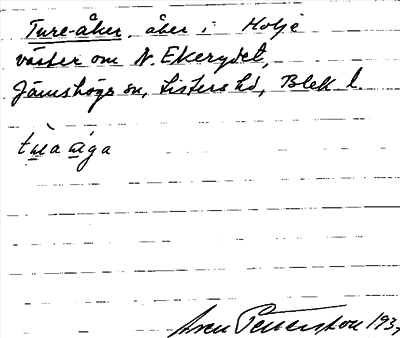 Ture-åker, åker i Holje
väster om N. Ekerydet,
Jämshögs sn, Listers hd, Blek l.
Sven Petterson 193